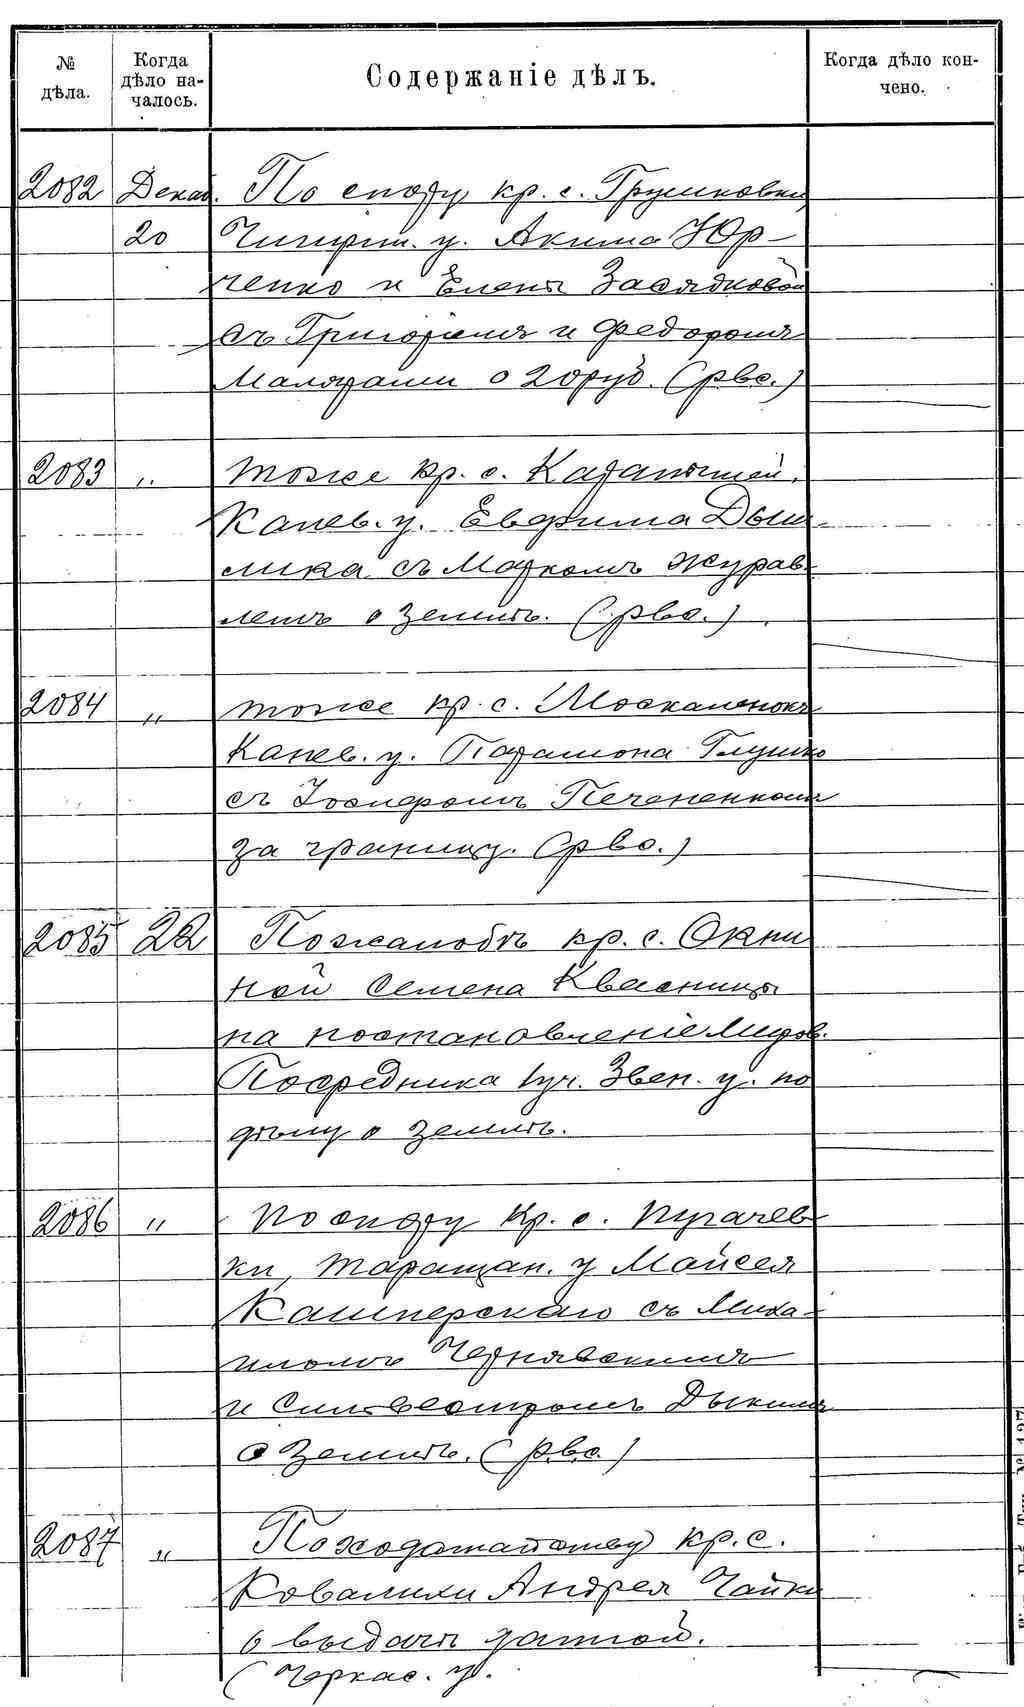 № дѣла.
Когда дѣло на-
чалось.
Содержаніе дѣлъ.
Когда дѣло кон-
чено.
2082 Декаб. По спору кр. с. Грушковки
20 Чигирин. у. Акима Юр-
ченко и Елены Засядковой
съ Григоріемъ и Федоромъ
Малярами о 20 руб. (рвс.)
2083 „ тоже кр. с. Карапышей,
Канев. у. Евфима Дым-
лика съ Маркомъ Журав-
лемъ о землѣ. (рвс.)
2084 „ тоже кр. с. Москаленокъ
Канев. у. Парамона Глушко
съ Іосифомъ Печененкомъ
за границу. (рвс.)
2085 22 По жалобѣ кр. с. Окни
ной Семена Квасницы
на постановленіе Миров.
Посредника 1 уч. Звен. у. по
дѣлу о землѣ.
2086 „ По спору кр. с. Пугачев-
ки, Таращан. у Мойсея
Кашперскаго съ Миха-
иломъ Чернявскимъ
и Сильвестромъ Дыкимъ
о землѣ. (рвс.)
2087 „ По ходатайству кр. с.
Ковалихи Андрея Чайки
о выдачѣ данной.
(Черкас. у.